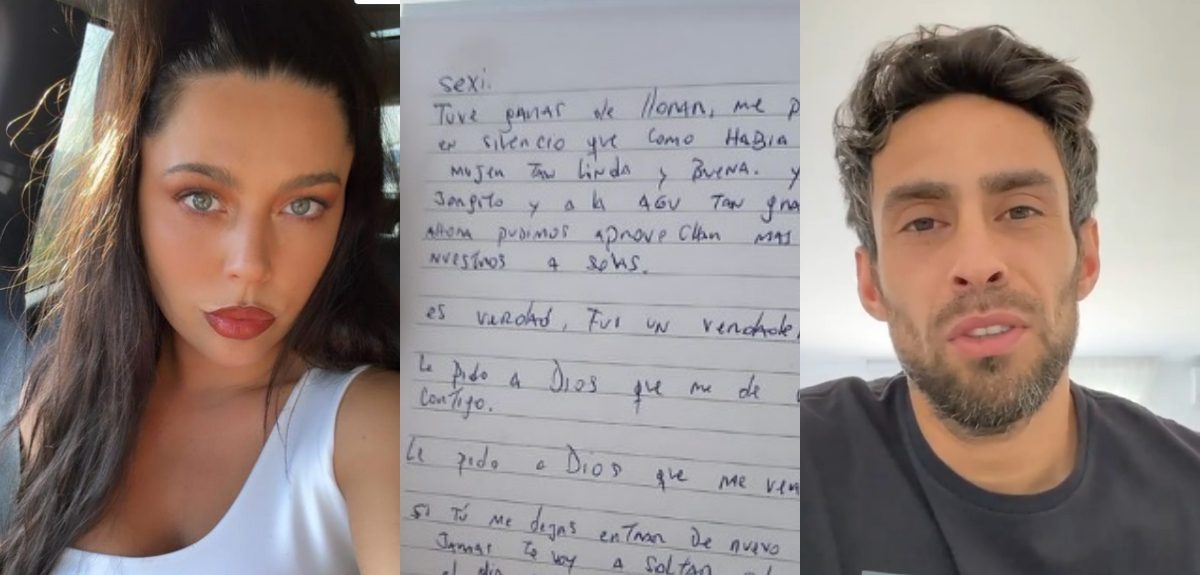 sexi.
Tuve ganas de llorar, me p
en silencio que como HABIA
mujer Tan linda y BUENA. y
Jorgito y a la AGU TAN gra
Ahora pudimos aprovechar MAS
nuestros a solas.
es verdad, Fui un verdade
Le pido a Dios que me de
contigo.
Le pido a Dios que me ven
si Tú me dejas entrar De nuevo
Jamas Te voy a soltar
el dia